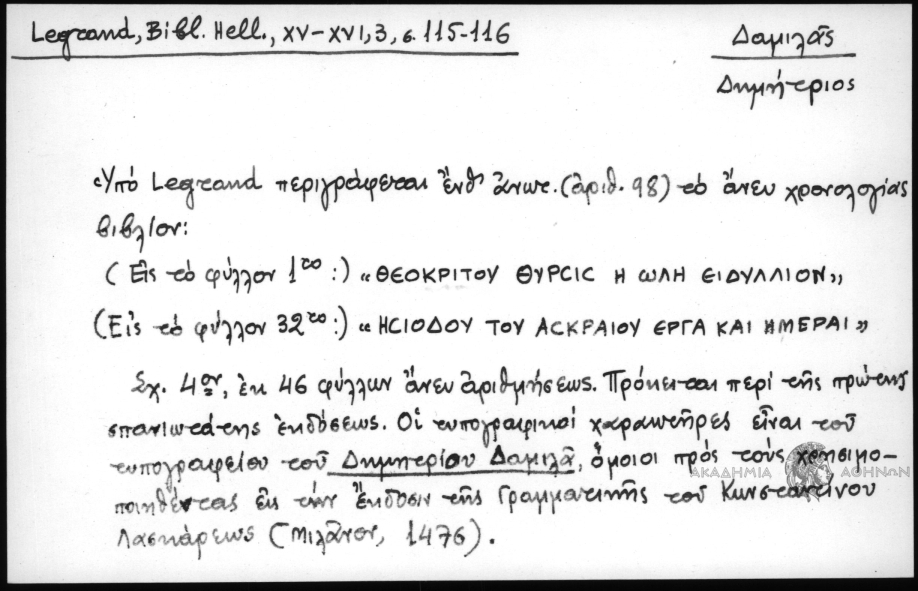 Legrand, Bibl. Hell., XV–XVI, 3, σ. 115-116
Δαμιλᾶς
Δημήτριος
«Ὑπό Legrand περιγράφεται ἔνθ' ἀνωτ. (ἀριθ. 98) τό ἄνευ χρονολογίας
βιβλίον:
(Εἰς τό φύλλον 1ον:) «ΘΕΟΚΡΙΤΟΥ ΘΥΡCΙC Η ΩΔΗ ΕΙΔΥΛΛΙΟΝ»,
(Εἰς τό φύλλον 32ον:) «ΗCΙΟΔΟΥ ΤΟΥ ΑCΚΡΑΙΟΥ ΕΡΓΑ ΚΑΙ ΗΜΕΡΑΙ»
Σχ. 4ον, ἐκ 46 φύλλων ἄνευ ἀριθμήσεως. Πρόκειται περί τῆς πρώτης
σπανιωτάτης ἐκδόσεως. Οἱ τυπογραφικοί χαρακτῆρες εἶναι τοῦ
τυπογραφείου τοῦ Δημητρίου Δαμιλᾶ, ὅμοιοι πρός τούς χρησιμο-
ποιηθέντας εἰς τήν ἔκδοσιν τῆς Γραμματικῆς τοῦ Κωνσταντίνου
Λασκάρεως (Μιλᾶνον, 1476).
ΑΚΑΔΗΜΙΑ ΑΘΗΝΩΝ